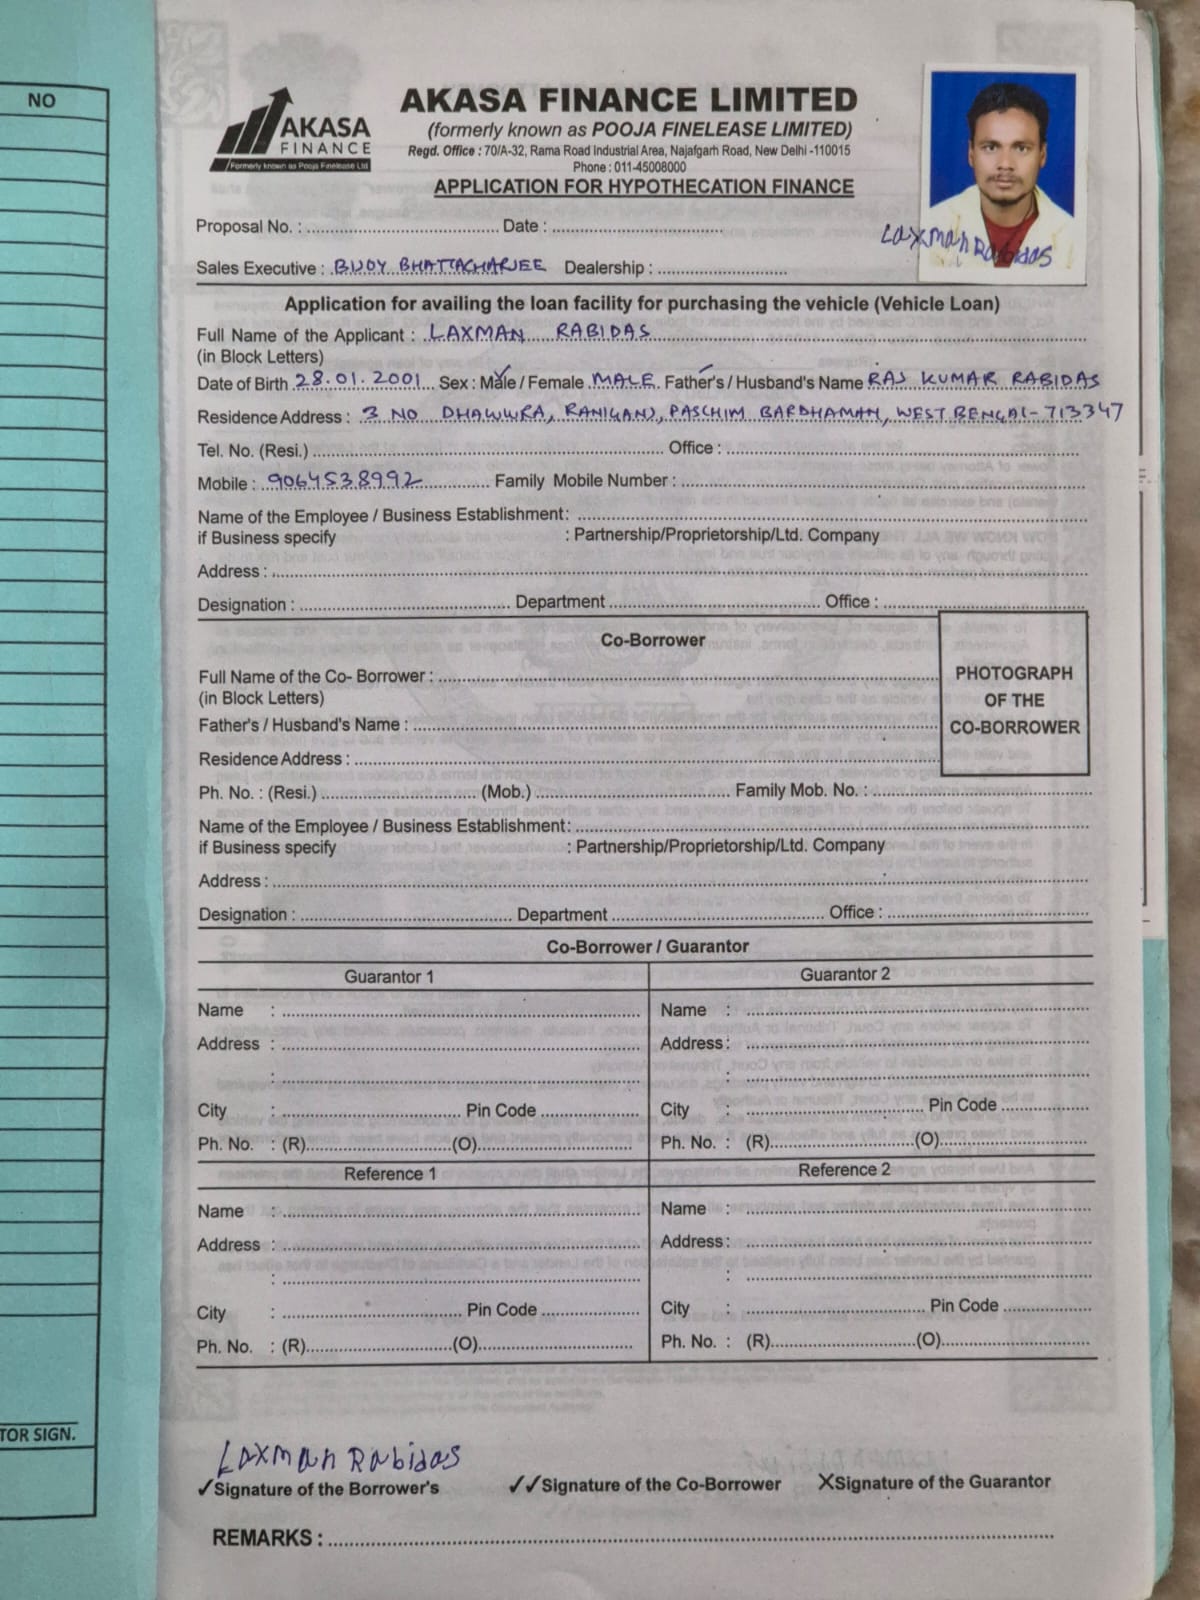 NO
AKASA
FINANCE
Formerly known as Pooja Finelease Ltd
AKASA FINANCE LIMITED
(formerly known as POOJA FINELEASE LIMITED)
Regd. Office : 70/A-32, Rama Road Industrial Area, Najafgarh Road, New Delhi -110015
Phone : 011-45008000
APPLICATION FOR HYPOTHECATION FINANCE
Laxman Rabidas
Proposal No. : Date :
Sales Executive : BIJOY BHATTACHARJEE Dealership :
Application for availing the loan facility for purchasing the vehicle (Vehicle Loan)
Full Name of the Applicant : LAXMAN RABIDAS
(in Block Letters)
Date of Birth 28.01.2001 Sex : Male / Female MALE Father's / Husband's Name RAJ KUMAR RABIDAS
Residence Address : 3 NO DHAWWRA, RANIGANJ, PASCHIM BARDHAMAN, WEST BENGAL-713347
Tel. No. (Resi.) Office :
Mobile : 9064538992 Family Mobile Number :
Name of the Employee / Business Establishment:
if Business specify : Partnership/Proprietorship/Ltd. Company
Address :
Designation : Department Office :
Co-Borrower
Full Name of the Co- Borrower :
(in Block Letters)
Father's / Husband's Name :
Residence Address :
PHOTOGRAPH
OF THE
CO-BORROWER
Ph. No. : (Resi.) (Mob.) Family Mob. No. :
Name of the Employee / Business Establishment:
if Business specify : Partnership/Proprietorship/Ltd. Company
Address :
Designation : Department Office :
Co-Borrower / Guarantor
Guarantor 1 Guarantor 2
Name : Name :
Address : Address :
: :
City : Pin Code City : Pin Code
Ph. No. : (R) (O) Ph. No. : (R) (O)
Reference 1 Reference 2
Name : Name :
Address : Address :
: :
City : Pin Code City : Pin Code
Ph. No. : (R) (O) Ph. No. : (R) (O)
TOR SIGN.
Laxman Rabidas
✓Signature of the Borrower's ✓✓Signature of the Co-Borrower XSignature of the Guarantor
REMARKS :